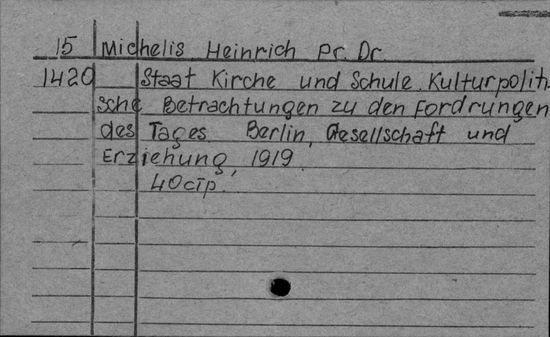 15 Michelis Heinrich Pr. Dr.
1420 Staat Kirche und Schule. Kulturpoliti
sche Betrachtungen zu den Fordrungen
des Tages. Berlin, Gesellschaft und
Erziehung, 1919.
40 стр.